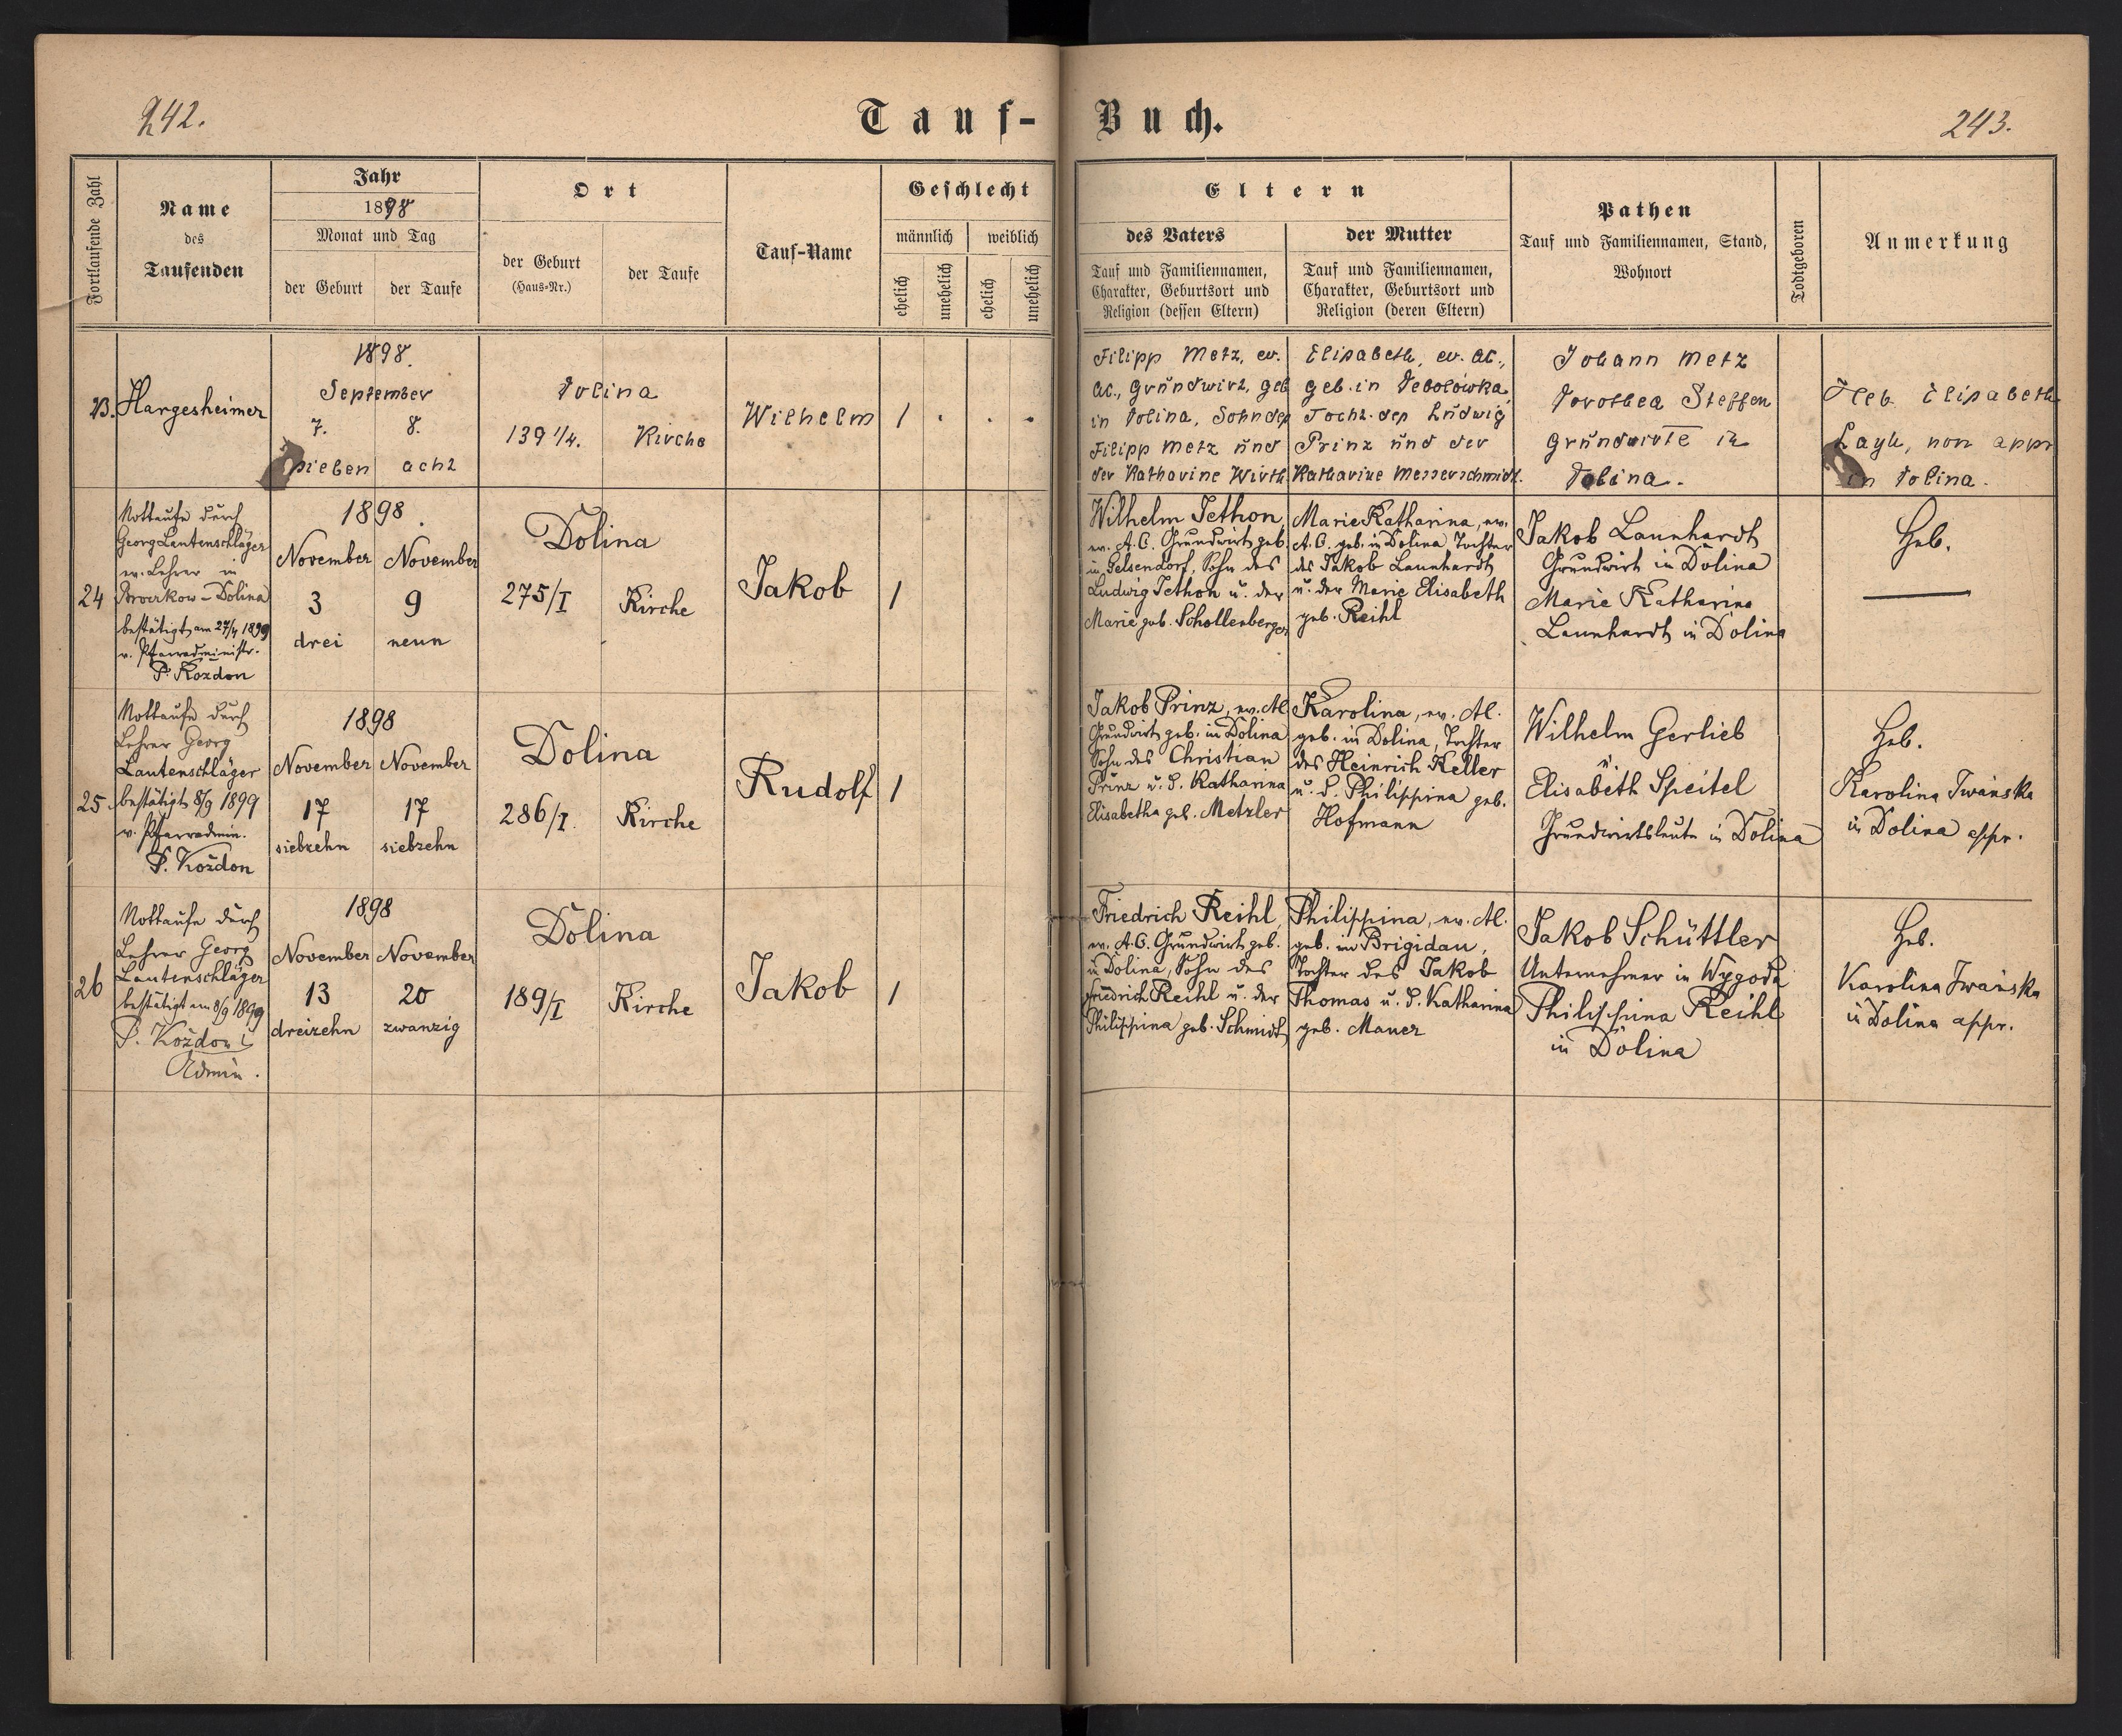 242.
Tauf-
Buch.
243.
Fortlaufende Zahl
Name
des
Taufenden
Jahr
1898
Monat und Tag
der Geburt
der Taufe
Ort
der Geburt
(Haus-Nr.)
der Taufe
Tauf-Name
Geschlecht
männlich
weiblich
ehelich
unehelich
ehelich
unehelich
Eltern
des Vaters
Tauf und Familiennamen,
Charakter, Geburtsort und
Religion (dessen Eltern)
der Mutter
Tauf und Familiennamen,
Charakter, Geburtsort und
Religion (deren Eltern)
Pathen
Tauf und Familiennamen, Stand,
Wohnort
Todtgeboren
Anmerkung
23.
Hargesheimer
1898.
September
7. 8.
sieben acht
Dolina
139 1/4. Kirche
Wilhelm
1
Filipp Metz, ev.
AC., Grundwirt, geb
in Dolina, Sohn des
Filipp Metz und
der Katharine Wirth
Elisabeth, ev. AC.,
geb. in Debolówka,
Tocht. des Ludwig
Prinz und der
Katharine Messerschmidt.
Johann Metz
Dorothea Steffen
Grundwirte in
Dolina.
Heb. Elisabeth
Layh, non appr
in Dolina.
24
Nottaufe durch
Georg Lautenschläger
ev. Lehrer in
Broczkow-Dolina
bestätigt am 27/4 1899
v. Pfarradministr.
P. Kozdon
1898.
November November
3 9
drei neun
Dolina
275/I Kirche
Jakob
1
Wilhelm Jethon,
ev. A.C. Grundwirt geb.
in Gelsendorf, Sohn des
Ludwig Jethon u. der
Marie geb. Schollenberger
Marie Katharina, ev.
A.C. geb. in Dolina Tochter
des Jakob Launhardt
u. der Marie Elisabeth
geb. Reihl
Jakob Launhardt
Grundwirt in Dolina
Marie Katharina
Launhardt in Dolina
Heb.
25.
Nottaufe durch
Lehrer Georg
Lautenschläger
bestätigt 8/9 1899
v. Pfarradmin.
P. Koždon
1898
November November
17 17
siebzehn siebzehn
Dolina
286/I. Kirche
Rudolf
1
Jakob Prinz, ev. AC
Grundwirt geb. in Dolina
Sohn des Christian
Prinz u. d. Katharina
Elisabetha geb. Metzler
Karolina, ev. AC.
geb. in Dolina, Tochter
des Heinrich Keller
u. d. Philippina geb.
Hofmann
Wilhelm Gerlieb
u.
Elisabeth Speitel
Grundwirtsleute in Dolina
Heb.
Karolina Iwańska
in Dolina appr.
26
Nottaufe durch
Lehrer Georg
Lautenschläger
bestätigt am 8/9 1899
P. Koždon
Admin.
1898
November November
13 20
dreizehn zwanzig
Dolina
189/I Kirche
Jakob
1
Friedrich Reihl,
ev. A.C. Grundwirt geb.
in Dolina, Sohn des
Friedrich Reihl u. der
Philippina geb. Schmidt
Philippina, ev. AC.
geb. in Brigidau,
Tochter des Jakob
Thomas u. d. Katharina
geb. Mauer
Jakob Schüttler
Unternehmer in Wygoda
Philippina Reihl
in Dolina
Heb.
Karolina Iwańska
in Dolina appr.